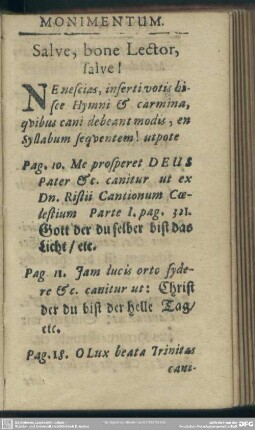 MONIMENTUM.
Salve, bone Lector,
salve!
NE nescias, inserti votis hi-
sce Hymni & carmina,
qvibus cani debeant modis, en
Syllabum seqventem! utpote
Pag. 10. Me prosperet DEUS
Pater &c. canitur ut ex
Dn. Ristii Cantionum Cœ-
lestium Parte I. pag. 321.
Gott der du selber bist das
Licht / etc.
Pag. 11. Jam lucis orto syde-
re &c. canitur ut: Christ
der du bist der helle Tag /
etc.
Pag. 18. O Lux beata Trinitas
cani-
DFG